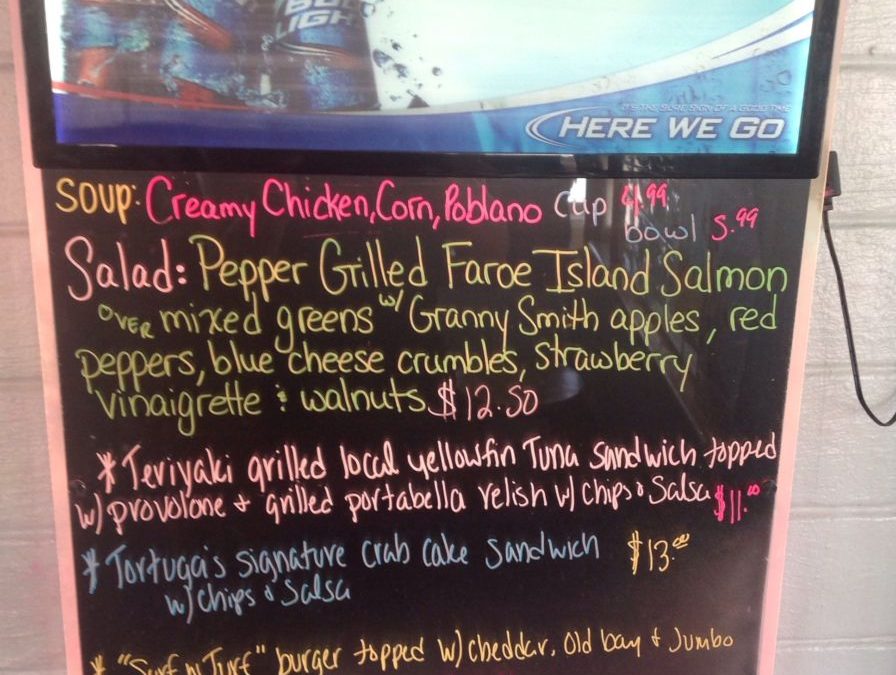 BUD
LIGHT
IT'S THE SURE SIGN OF A GOOD TIME
HERE WE GO
SOUP: Creamy Chicken, Corn, Poblano Cup 4.99
bowl 5.99
Salad: Pepper Grilled Faroe Island Salmon
OVER mixed greens w/ Granny Smith apples, red
peppers, blue cheese crumbles, strawberry
vinaigrette & walnuts $12.50
* Teriyaki grilled local yellowfin Tuna sandwich topped
w/ provolone + grilled portabella relish w/ chips & Salsa $11.00
* Tortuga's signature crab cake sandwich $13.00
w/ chips & Salsa
* "Surf n Turf" burger topped w/ cheddar, Old bay & Jumbo